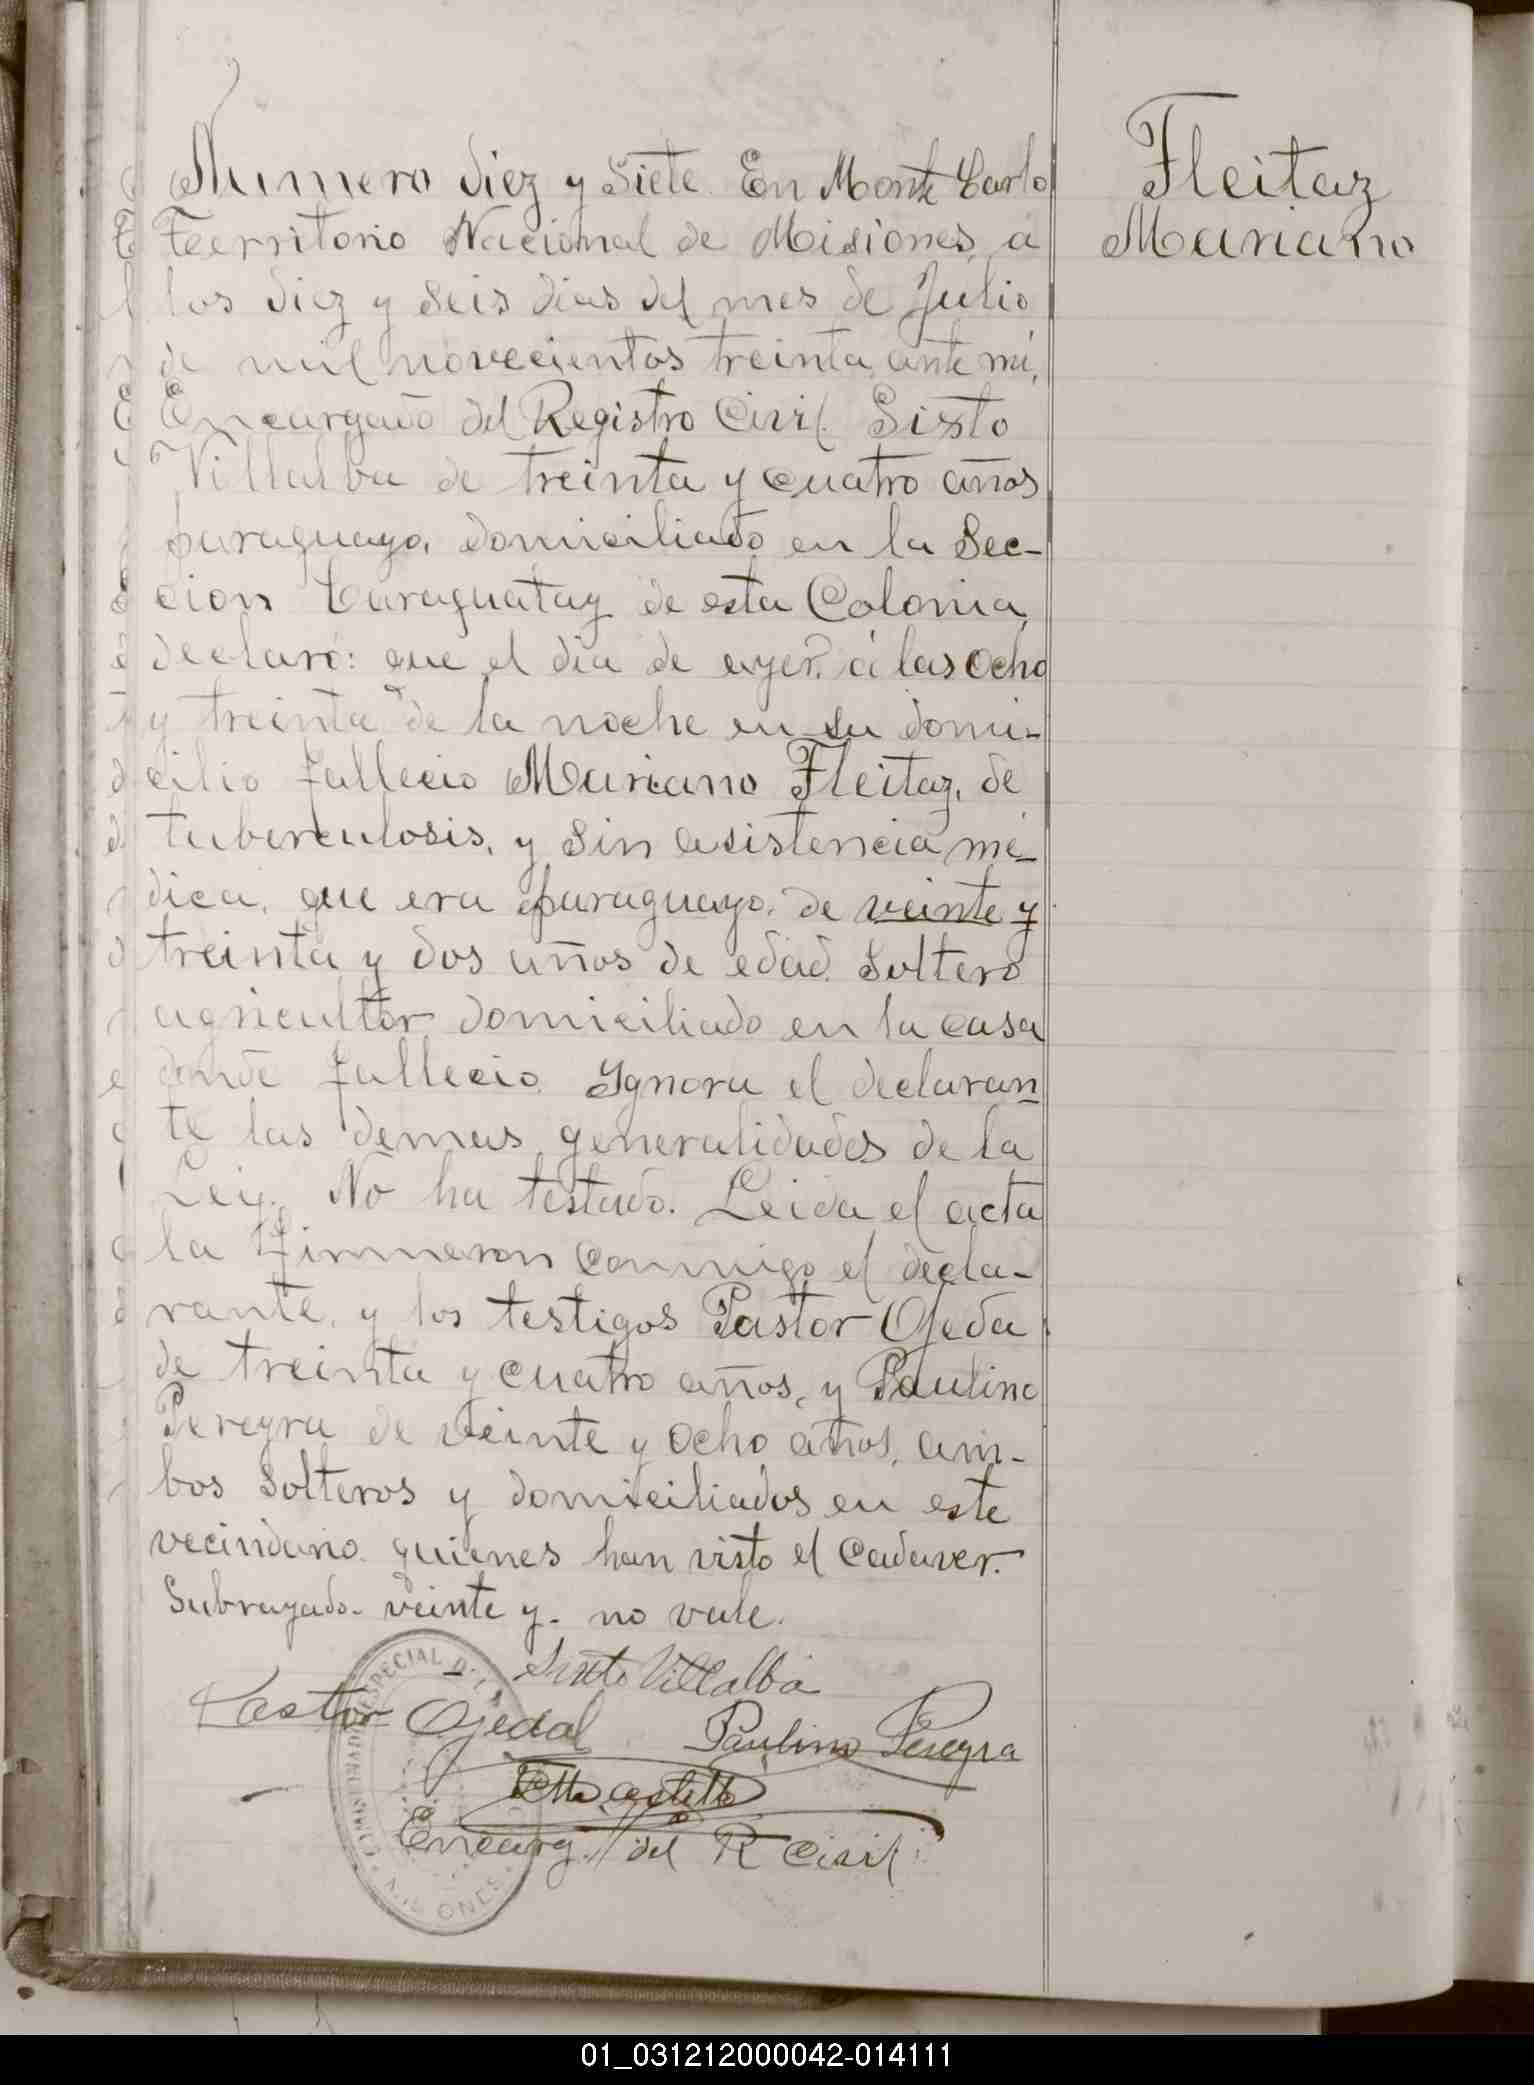 Numero diez y Siete. En Monte Carlo
Teerritorio Nacional de Misiones, a
los diez y seis dias del mes de Julio
de mil novecientos treinta, ante mi,
Encargado del Registro Civil. Sixto
Villalba de treinta y cuatro años
paraguayo, domiciliado en la Sec-
cion Caraguatay de esta Colonia,
declaró: que el dia de ayer, á las ocho
y treinta de la noche en su domi-
cilio fallecio Mariano Fleitaz, de
tuberculosis, y sin asistencia mé-
dica, que era paraguayo, de veinte y
treinta y dos años de edad, soltero
agricultor domiciliado en la casa
donde fallecio. Ygnora el declaran
te las demas generalidades de la
Ley. No ha testado. Leida el acta
la firmeron conmigo el decla-
rante, y los testigos Pastor Ojeda
de treinta y cuatro años, y Paulino
Pereyra de veinte y ocho años, am-
bos solteros y domiciliados en este
vecindario quienes han visto el cadaver.
Subrayado- veinte y- no vale.
Sixto Villalba
Pastor Ojedal
Paulino Pereyra
Encarg. del R Civil
Fleitaz
Mariano
ESPECIAL DEL
MISIONES
01_031212000042-014111